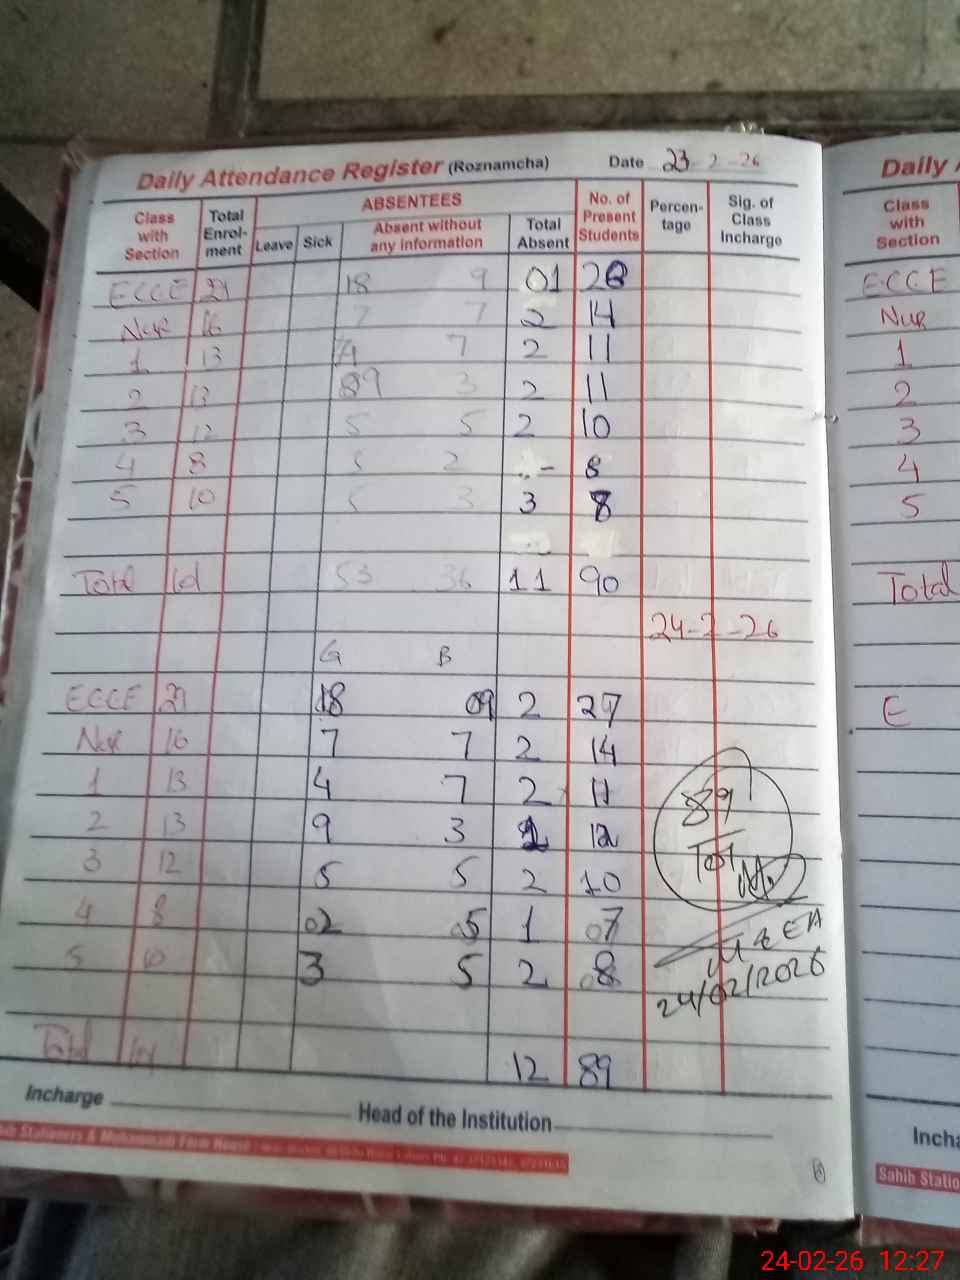 Daily Attendance Register (Roznamcha) Date 23-2-26
Class with Section Total Enrol-ment ABSENTEES Leave Sick Absent without any information Total Absent No. of Present Students Percen-tage Sig. of Class Incharge
ECCE 29 18 9 01 28
Nur 16 7 7 2 14
1 13 4 7 2 11
2 13 89 3 2 11
3 12 5 5 2 10
4 8 5 2 - 8
5 10 5 3 3 8
Total 101 53 36 11 90
24-2-26
G B
ECCE 29 18 09 2 27
Nur 16 7 7 2 14
1 13 4 7 2 11
2 13 9 3 12
3 12 5 5 2 10
4 8 02 5 1 07
5 10 3 5 2 08
Total 101 12 89
89
Tot
M & EA
24/02/2026
Incharge Head of the Institution
Daily
Class with Section
ECCE
Nur
1
2
3
4
5
Total
E
Incha
Sahib Statio
24-02-26 12:27